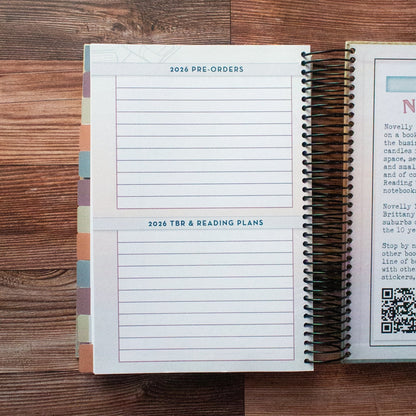 2026 PRE-ORDERS
2026 TBR & READING PLANS
N
Novelly
on a book
the busin
candles i
space, se
and small
and of co
Reading
notebooks
Novelly
Brittany
suburbs o
the 10 ye
Stop by n
other boo
line of b
with othe
stickers,